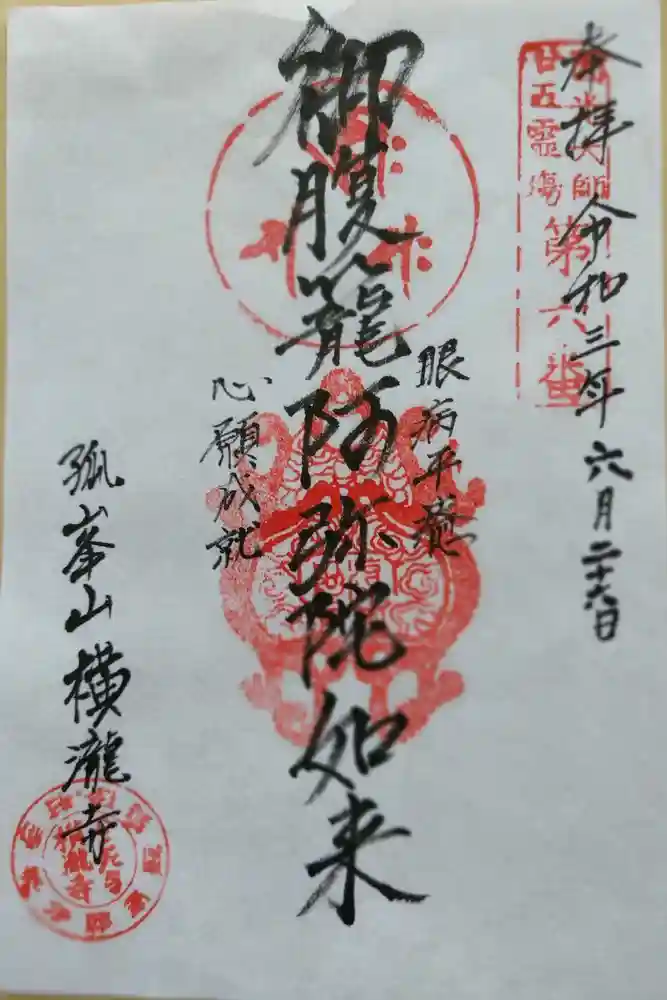 奉拝 令和三年 六月二十六日
廿五霊場
第六番
眼病平癒
御腹籠阿弥陀如来
心願成就
孤峯山 横瀧寺